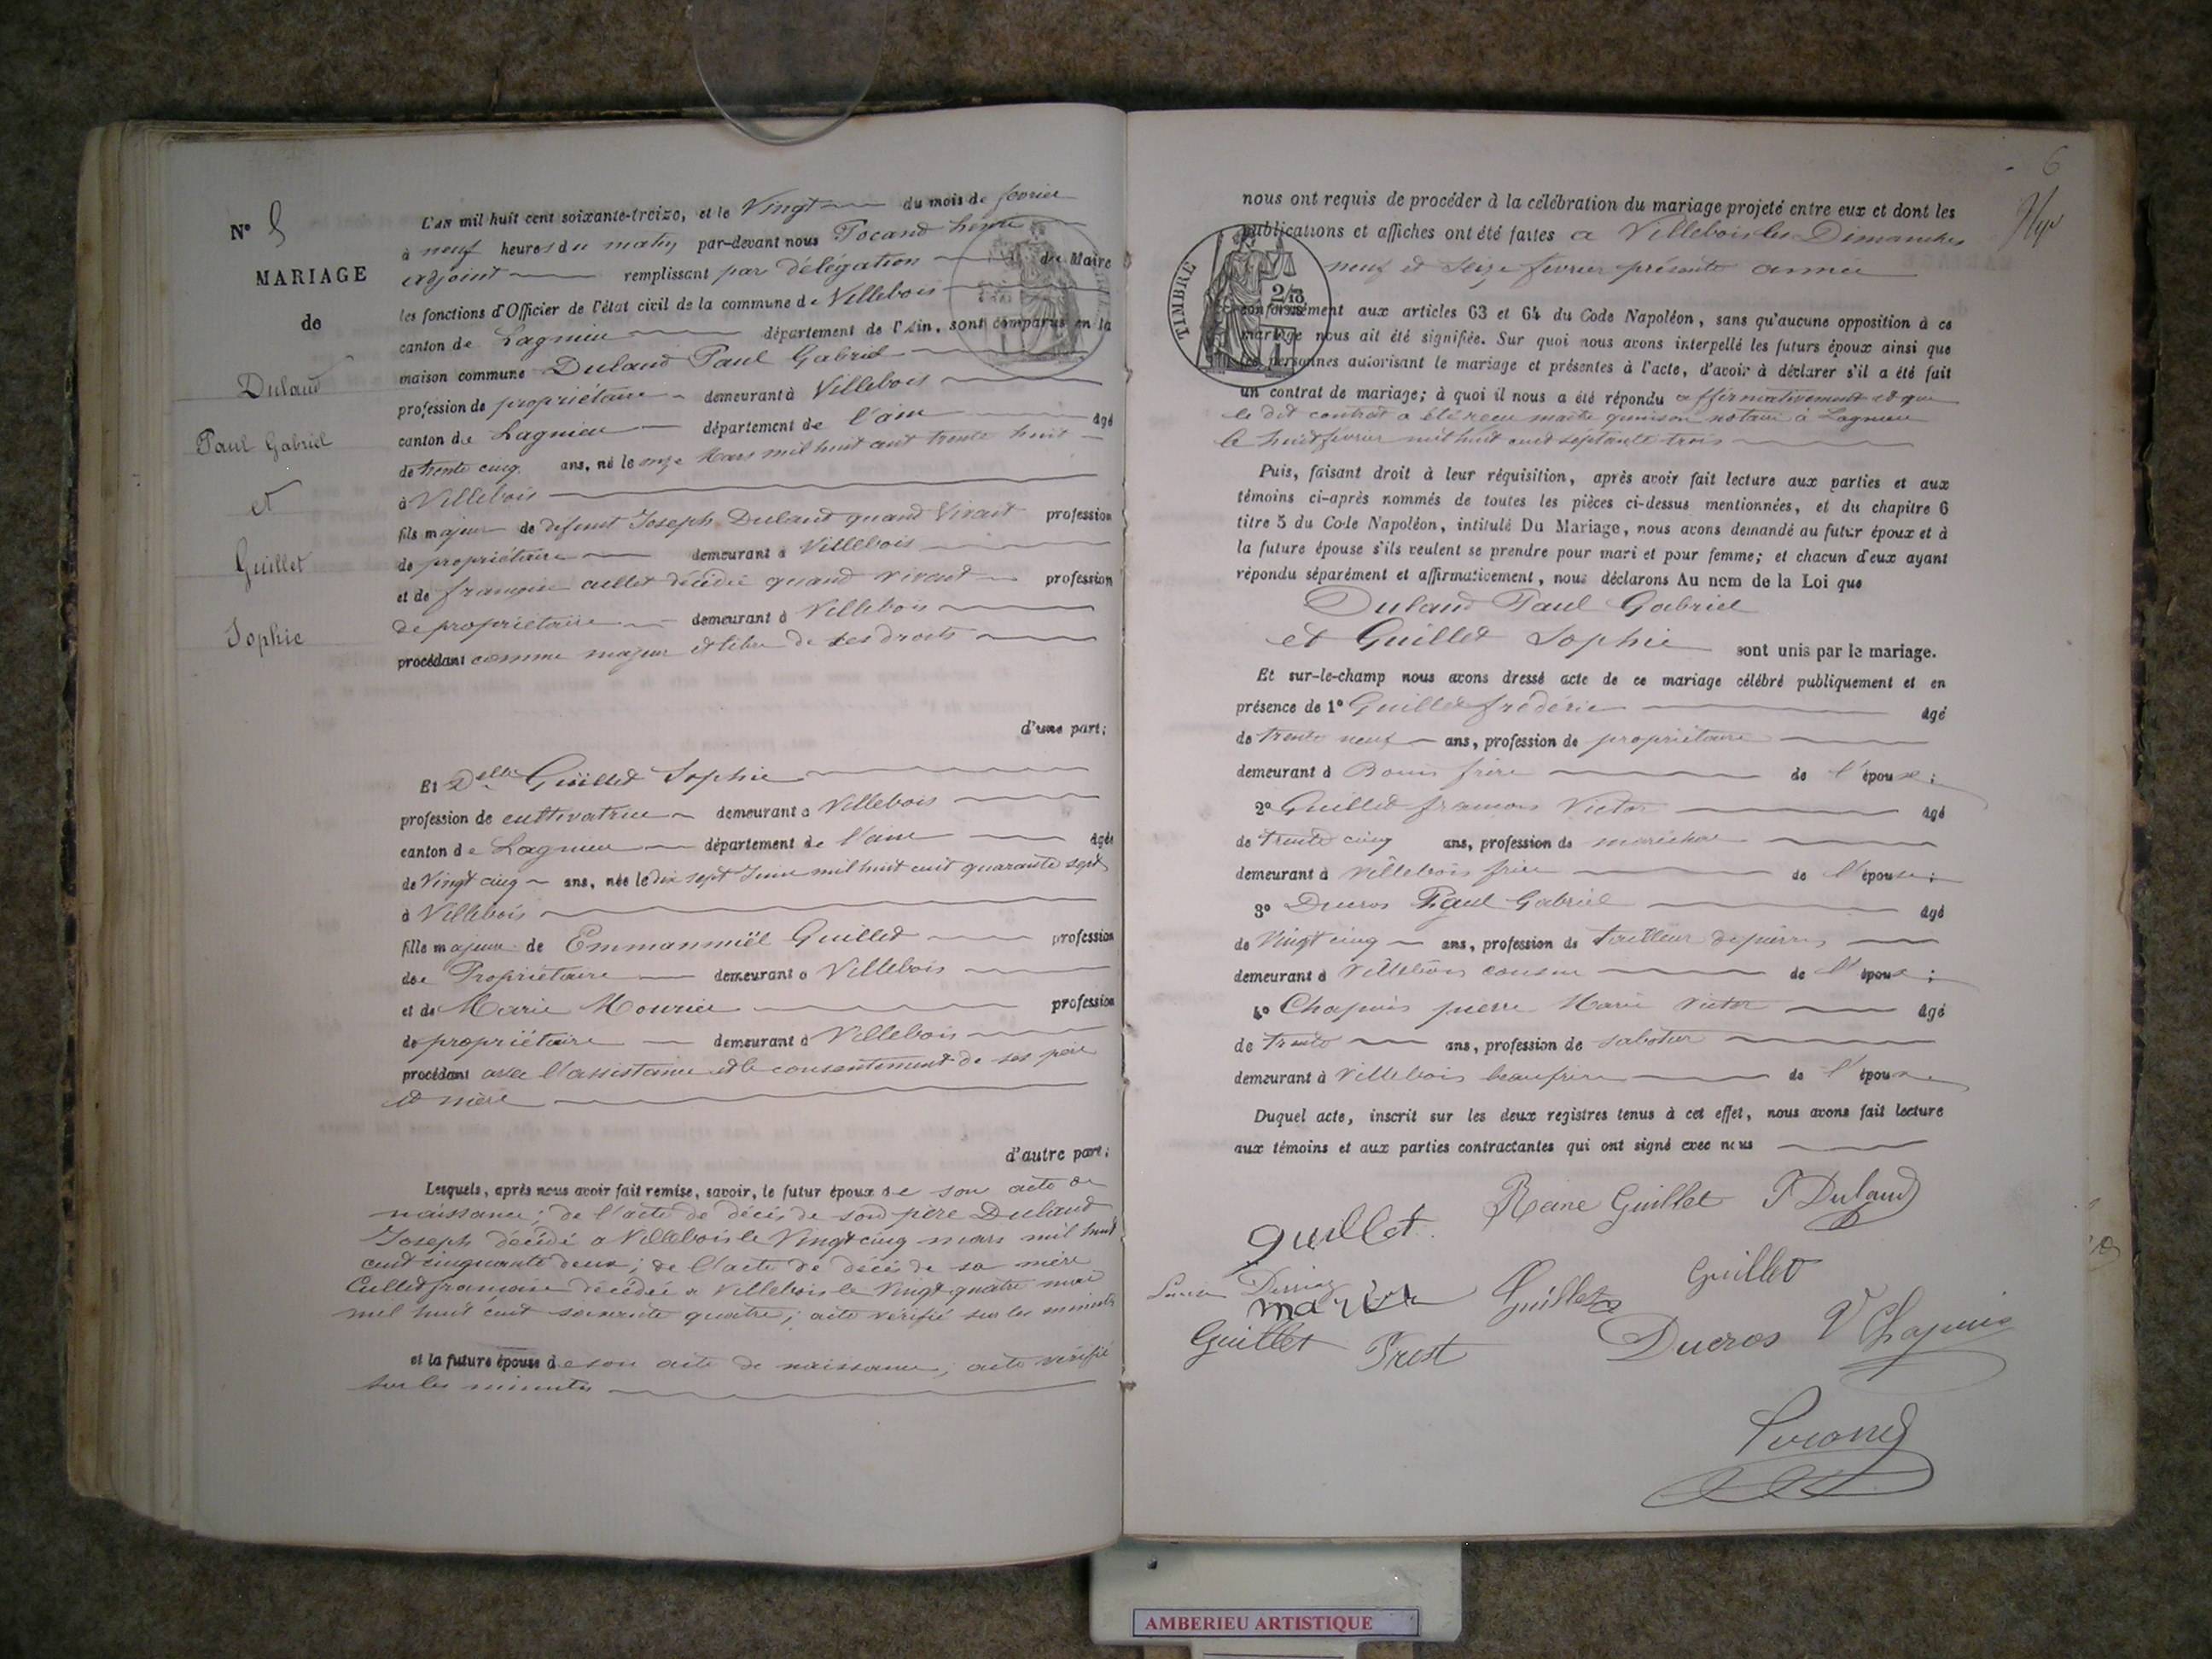 N° 5
MARIAGE
de
Dulaud
Paul Gabriel
et
Guillet
Sophie
L'AN mil huit cent soixante-treize, et le Vingt du mois de fevrier
à neuf heures du matin, par-devant nous Pocand
adjoint remplissant par délégation du Maire
les fonctions d'Officier de l'état civil de la commune de Villebois
canton de Lagnieu département de l'Ain, sont comparus en la
maison commune Dulaud Paul Gabriel
profession de propriétaire demeurant à Villebois
canton de Lagnieu département de l'ain âgé
de trente cinq ans, né le onze Mars mil huit cent trente huit
à Villebois
fils majeur de défunt Joseph Dulaud quand Vivait profession
de propriétaire demeurant à Villebois
et de françoise cullet décédée quand vivait profession
de propriétaire demeurant à Villebois
procédant comme majeur et libre de ses droits
d'une part;
Et Delle Guillet Sophie
profession de cultivatrice demeurant à Villebois
canton de Lagnieu département de l'ain âgée
de Vingt cinq ans, née le dix sept Juin mil huit cent quarante sept
à Villebois
fille majeure de Emmanuel Guillet profession
de Propriétaire demeurant à Villebois
et de Marie Mourier profession
de propriétaire demeurant à Villebois
procédant avec l'assistance et le consentement de ses père
et mère
d'autre part;
Lesquels, après nous avoir fait remise, savoir, le futur époux de son acte de
naissance; de l'acte de décès de son père Dulaud
Joseph décédé à Villebois le Vingt cinq mars mil huit
cent cinquante deux; de l'acte de décès de sa mère
Cullet françoise décédée à Villebois le Vingt quatre mai
mil huit cent soixante quatre; acte vérifié sur les minutes
et la future épouse de son acte de naissance; acte vérifié
sur les minutes
6
nous ont requis de procéder à la célébration du mariage projeté entre eux et dont les
publications et affiches ont été faites a Villebois les Dimanches
neuf et seize fevrier présente année
TIMBRE
conformément aux articles 63 et 64 du Code Napoléon, sans qu'aucune opposition à ce
mariage nous ait été signifiée. Sur quoi nous avons interpellé les futurs époux ainsi que
les personnes autorisant le mariage et présentes à l'acte, d'avoir à déclarer s'il a été fait
un contrat de mariage; à quoi il nous a été répondu affirmativement et que
le dit contrat a été reçu maitre notaire à Lagnieu
le huit fevrier mil huit cent septante trois
Puis, faisant droit à leur réquisition, après avoir fait lecture aux parties et aux
témoins ci-après nommés de toutes les pièces ci-dessus mentionnées, et du chapitre 6
titre 5 du Code Napoléon, intitulé Du Mariage, nous avons demandé au futur époux et à
la future épouse s'ils veulent se prendre pour mari et pour femme; et chacun d'eux ayant
répondu séparément et affirmativement, nous déclarons Au nom de la Loi que
Dulaud Paul Gabriel
et Guillet Sophie sont unis par le mariage.
Et sur-le-champ nous avons dressé acte de ce mariage célébré publiquement et en
présence de 1° Guillet frédéric âgé
de trente neuf ans, profession de propriétaire
demeurant à frère de l'épouse;
2° Guillet francois Victor âgé
de trente cinq ans, profession de maréchal
demeurant à Villebois frère de l'épouse;
3° Ducros Paul Gabriel âgé
de Vingt cinq ans, profession de tailleur de pierres
demeurant à Villebois cousin de l'épouse;
4° Chapuis pierre Marie Victor âgé
de trente ans, profession de sabotier
demeurant à Villebois beaufrère de l'épouse
Duquel acte, inscrit sur les deux registres tenus à cet effet, nous avons fait lecture
aux témoins et aux parties contractantes qui ont signé avec nous
Guillet Guillet P Dulaud
Guillet Guillet
Guillet Prost Ducros V Chapuis
Pocand
AMBERIEU ARTISTIQUE